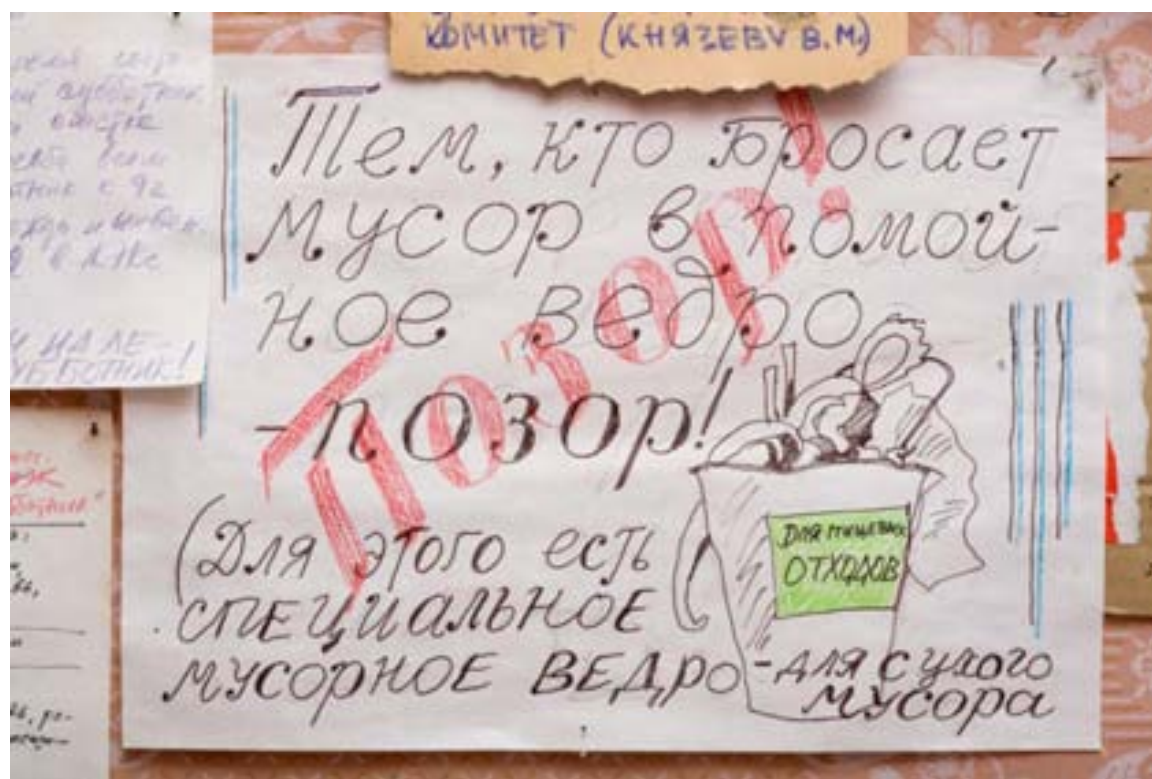 КОМИТЕТ (КНЯЗЕВУ В.М.)
Тем, кто бросает
мусор в помой-
ное ведро
- позор!
Позор!
(Для этого есть
СПЕЦИАЛЬНОЕ
МУСОРНОЕ ВЕДРО - для сухого
мусора
ДЛЯ ПИЩЕВЫХ
ОТХОДОВ
субботник
с 9
И НА ЛЕ-
СУББОТНИК!